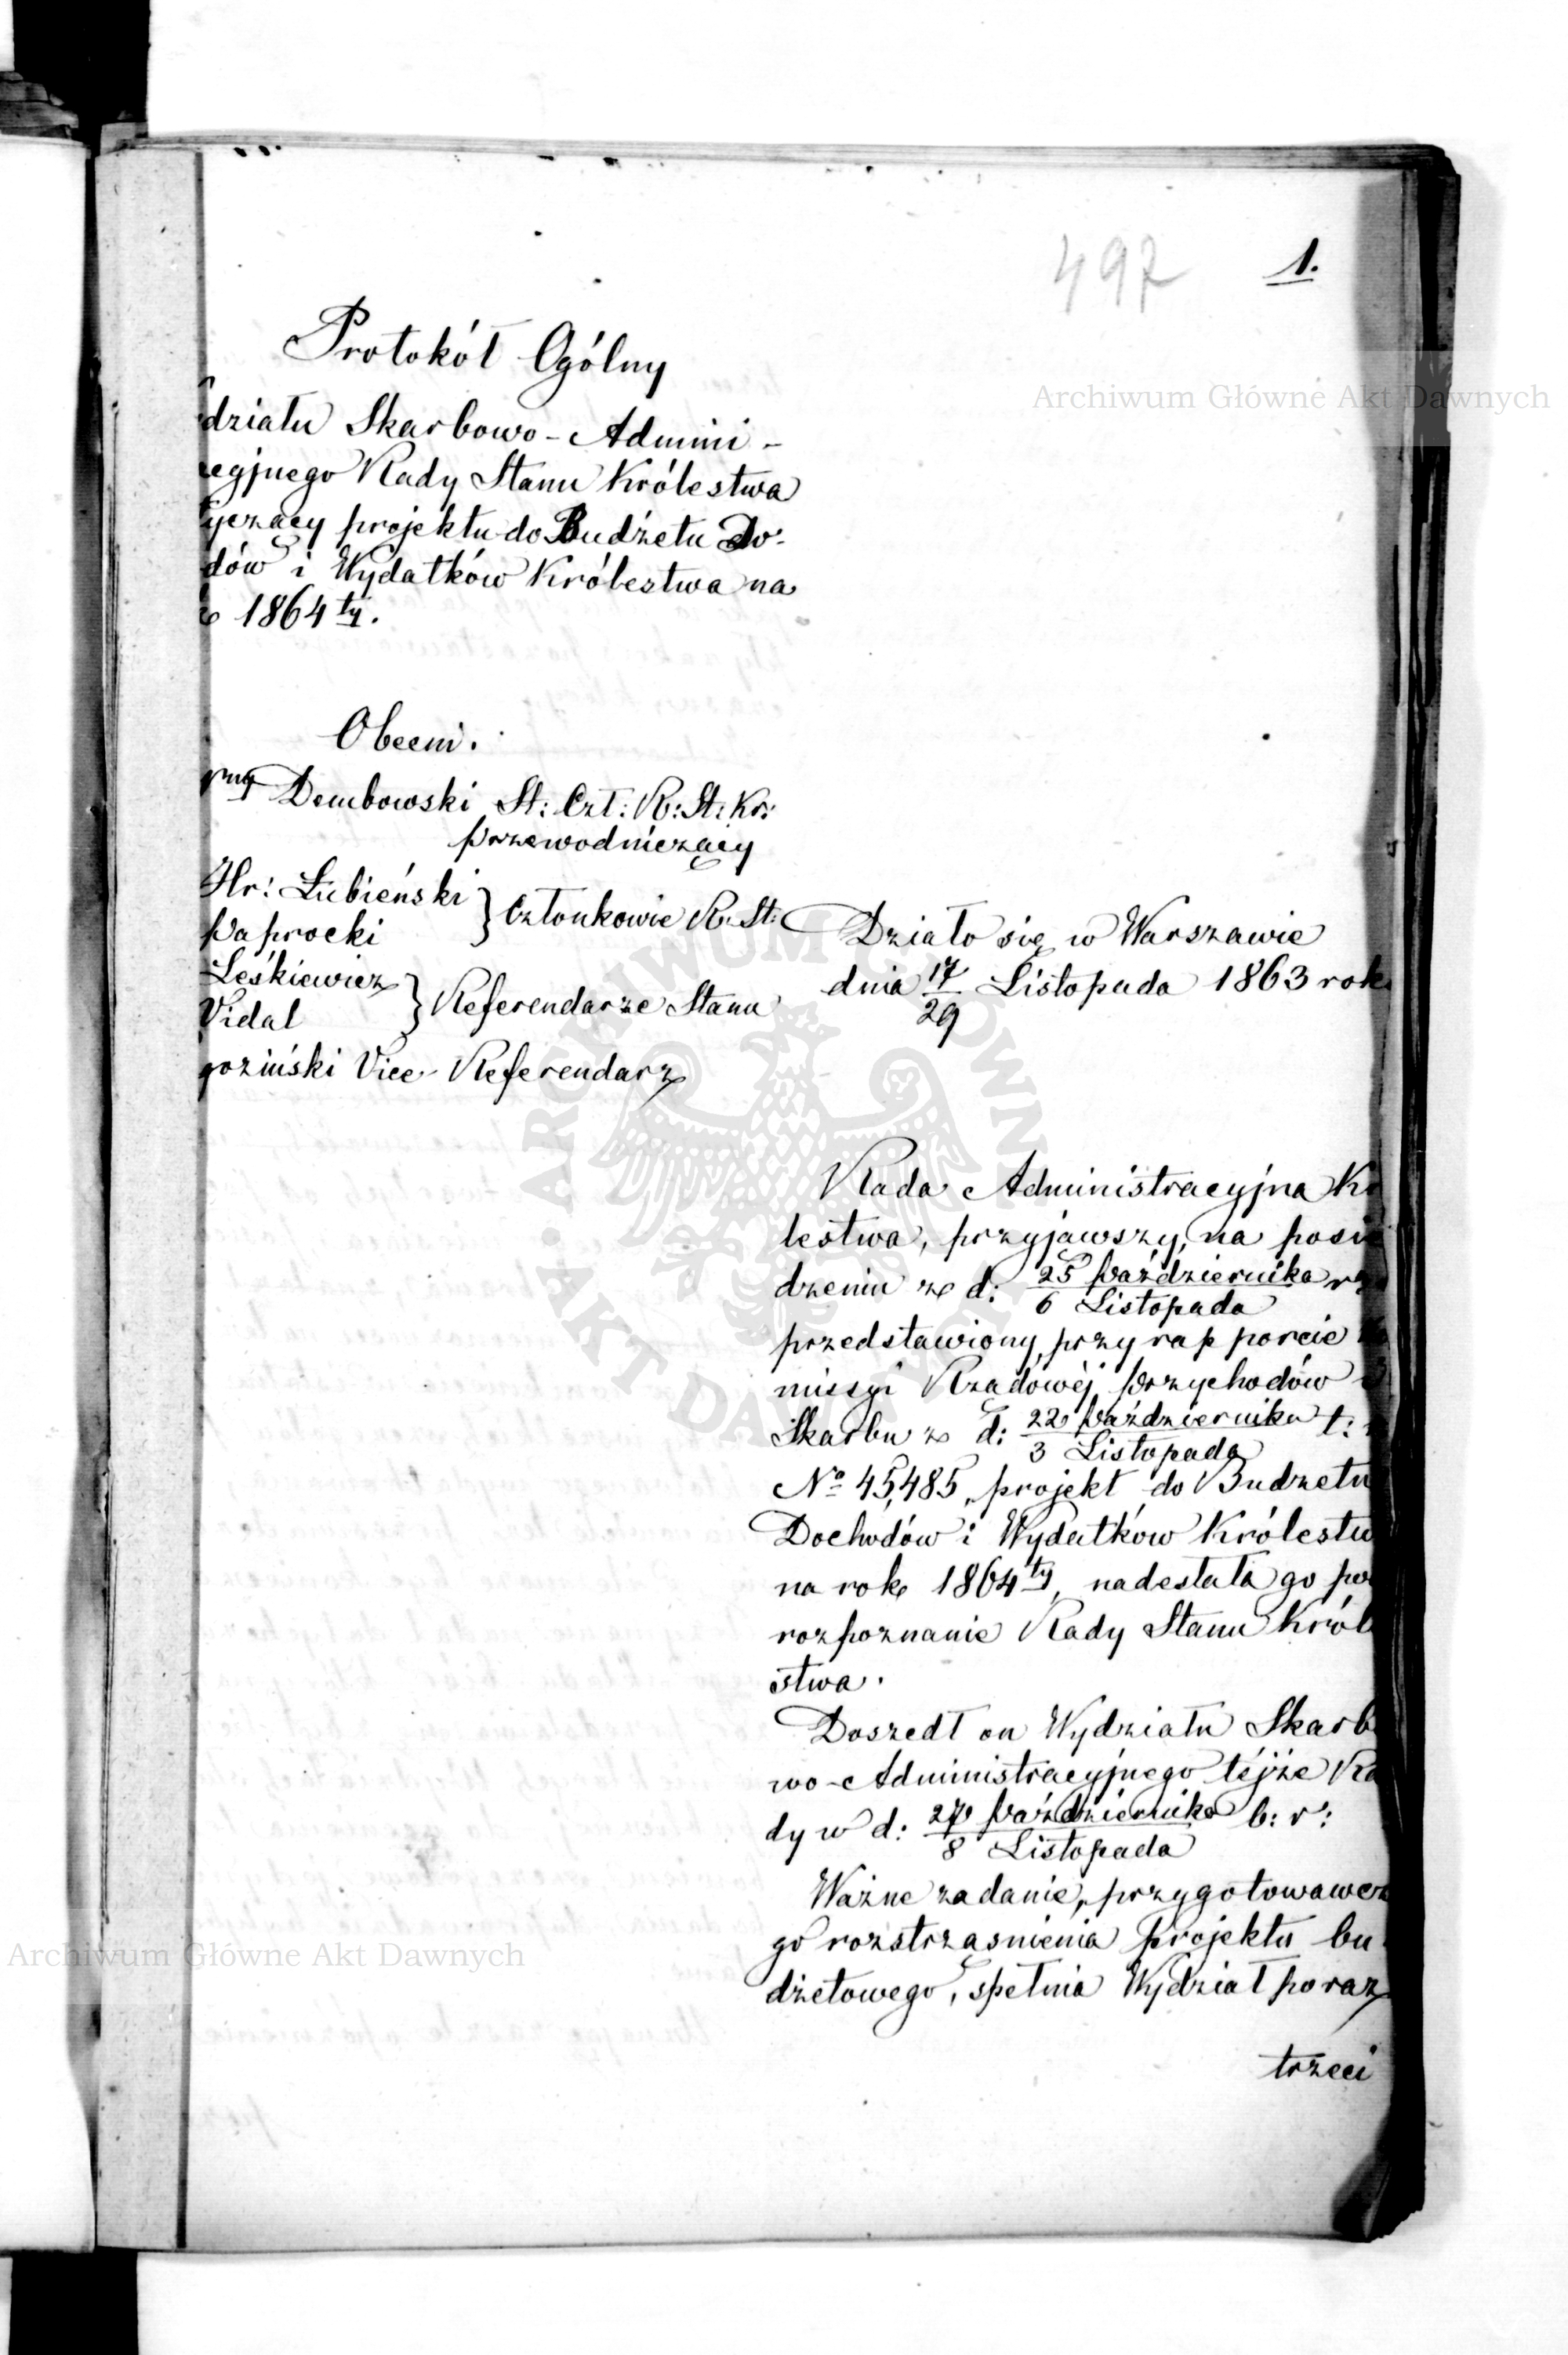 497
1.
Protokół Ogólny
działu Skarbowo-Admini-
cyjnego Rady Stanu Królestwa
yczący projektu do Budżetu Do-
dów i Wydatków Królestwa na
1864 ty.
Obecni.
Dembowski St: Czł: R: St: Kr:
przewodniczący
Hr: Łubieński
Paprocki
} Członkowie R. St:
Leśkiewicz
Vidal
} Referendarze Stanu
goziński Vice-Referendarz
Działo się w Warszawie
dnia 17/29 Listopada 1863 rok
Rada Administracyjna Kr
lestwa, przyjąwszy, na posie
dzeniu z d: 25 Października/6 Listopada
przedstawiony, przy rapporcie
missyi Rządowéj Przychodów
Skarbu z d: 22 Października/3 Listopada t:
No 45,485, projekt do Budżetu
Dochodów i Wydatków Królestw
na rok 1864 ty, nadesłała go po
rozpoznanie Rady Stanu Król
stwa.
Doszedł on Wydziału Skarb
wo-Administracyjnego téjże Ra
dy w d: 27 Października/8 Listopada b: r:
Ważne zadanie, przygotowawcz
go rozstrząśnienia projektu bu
dżetowego, spełnia Wydział po raz
trzeci
Archiwum Główne Akt Dawnych
Archiwum Główne Akt Dawnych
ARCHIWUM GŁÓWNE AKT DAWNYCH